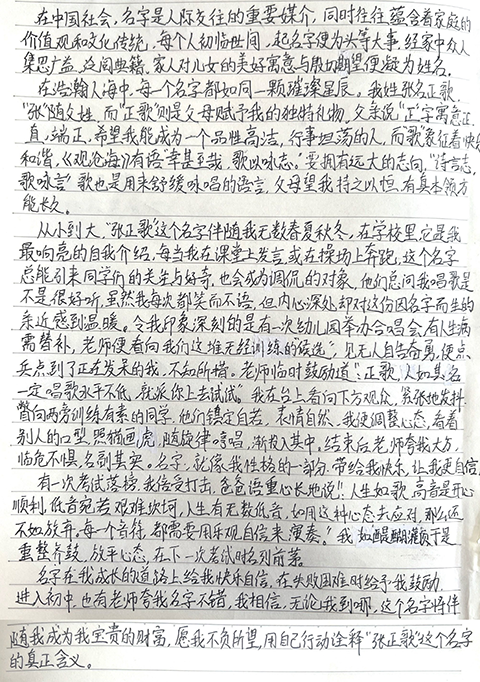 在中国社会,名字是人际交往的重要媒介,同时往往蕴含着家庭的
价值观和文化传统,每个人初临世间,起名字便为头等大事,经家中众人
集思广益,途阅典籍,家人对儿女的美好寓意与殷切期望便凝为姓名。
在浩瀚人海中,每一个名字都如同一颗璀璨星辰。我姓张名正歌,
"张"随父姓,而"正歌"则是父母赋予我的独特礼物,父亲说"正"字寓意正
直、端正,希望我能成为一个品性高洁,行事坦荡的人,而歌"象征着快乐
和谐,《观沧海》有语"幸甚至哉,歌以咏志。"要拥有远大的志向,"诗言志,
歌咏言"歌也是用来舒缓咏唱的语言,父母望我持之以恒,有真本领方
能长久。
从小到大,"张正歌"这个名字伴随我无数春夏秋冬,在学校里,它是我
最响亮的自我介绍,每当我在课堂上发言,或在操场上奔跑,这个名字
总能引来同学们的关注与好奇,也会成为调侃的对象,他们总问我唱歌是
不是很好听,虽然我每次都笑而不语,但内心深处却对这份因名字而生的
亲近感到温暖。令我印象深刻的是有一次幼儿园举办合唱会,有人生病
需替补,老师便看向我们这堆无经训练的候选",见无人自告奋勇,便点
兵点到了正在发呆的我,不知所措。老师临时鼓励道":正歌,人如其名
一定唱歌水平不低,就派你上去试试。"我在台上看向下方观众,紧张地发抖,
瞥向两旁训练有素的同学,他们镇定自若,表情自然。我便调整心态,看着
别人的口型,照猫画虎,随旋律哼唱,渐投入其中。结束后老师夸我大方,
临危不惧,名副其实。名字,就像我性格的一部分,带给我快乐,让我更自信。
有一次考试落榜,我倍受打击,爸爸语重心长地说":人生如歌,高音是开心
顺利,低音宛若艰难坎坷,人生有无数低音,如用这种心态去应对,那么还
不如放弃。每个音符,都需要用乐观自信来演奏。"我如醍醐灌顶于是
重整旗鼓,放平心态,在下一次考试时名列前茅。
名字在我成长的道路上给我快乐自信,在失败困难时给予我鼓励,
进入初中,也有老师夸我名字不错,我相信,无论我到哪,这个名字将伴
随我成为我宝贵的财富,愿我不负所望,用自己行动诠释"张正歌"这个名字
的真正含义。